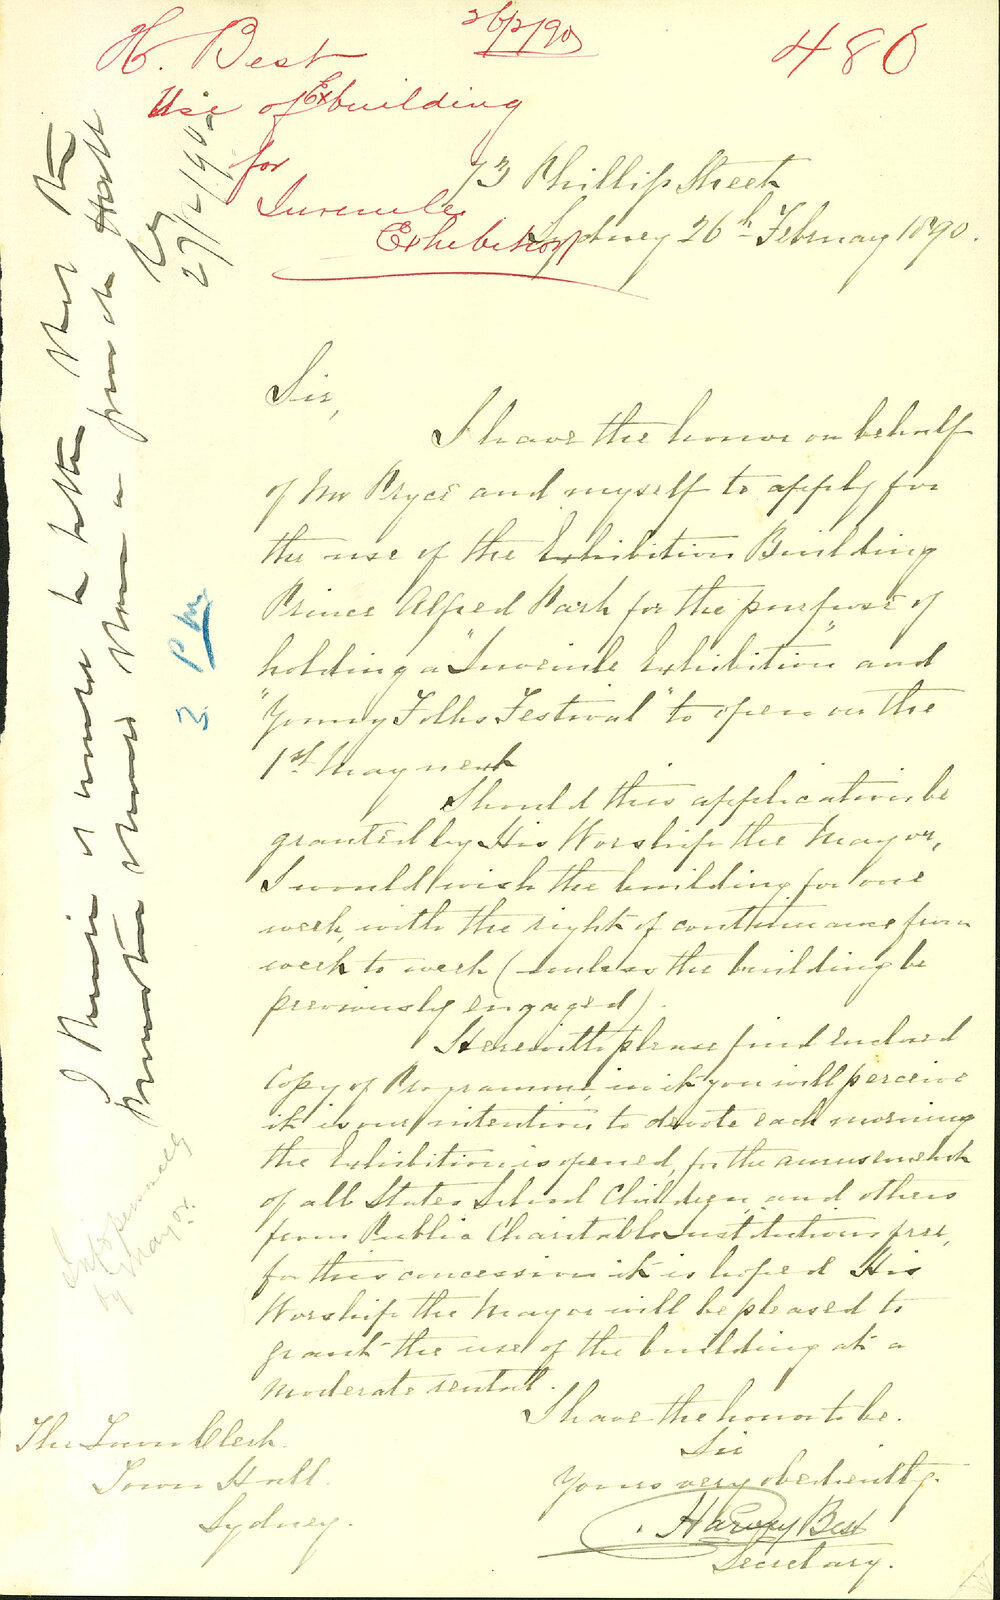 H. Best
26/2/90
480
Use of Ex building
for
Juvenile
Exhibition
73 Phillip Street
Sydney 26th February 1890.
Sir,
I have the honor on behalf
of Mr Pryce and myself to apply for
the use of the Exhibition Building
Prince Alfred Park for the purpose of
holding a "Juvenile Exhibition" and
"Young Folks Festival" to open on the
1st May next
Should this application be
granted by His Worship the Mayor,
I would wish the building for one
week, with the right of continuance from
week to week (unless the building be
previously engaged).
Herewith please find enclosed
Copy of Programme, in it you will perceive
it is our intention to devote each morning
the Exhibition is opened, for the amusement
of all States School Children, and others
from Public Charitable Institutions free,
for this concession it is hoped His
Worship the Mayor will be pleased to
grant the use of the building at a
moderate rental.
I have the honor to be.
Sir
Yours very obediently.
Harvey Best
Secretary.
The Town Clerk.
Town Hall.
Sydney.
I think it would be better that the
3 PM
by Mayor.